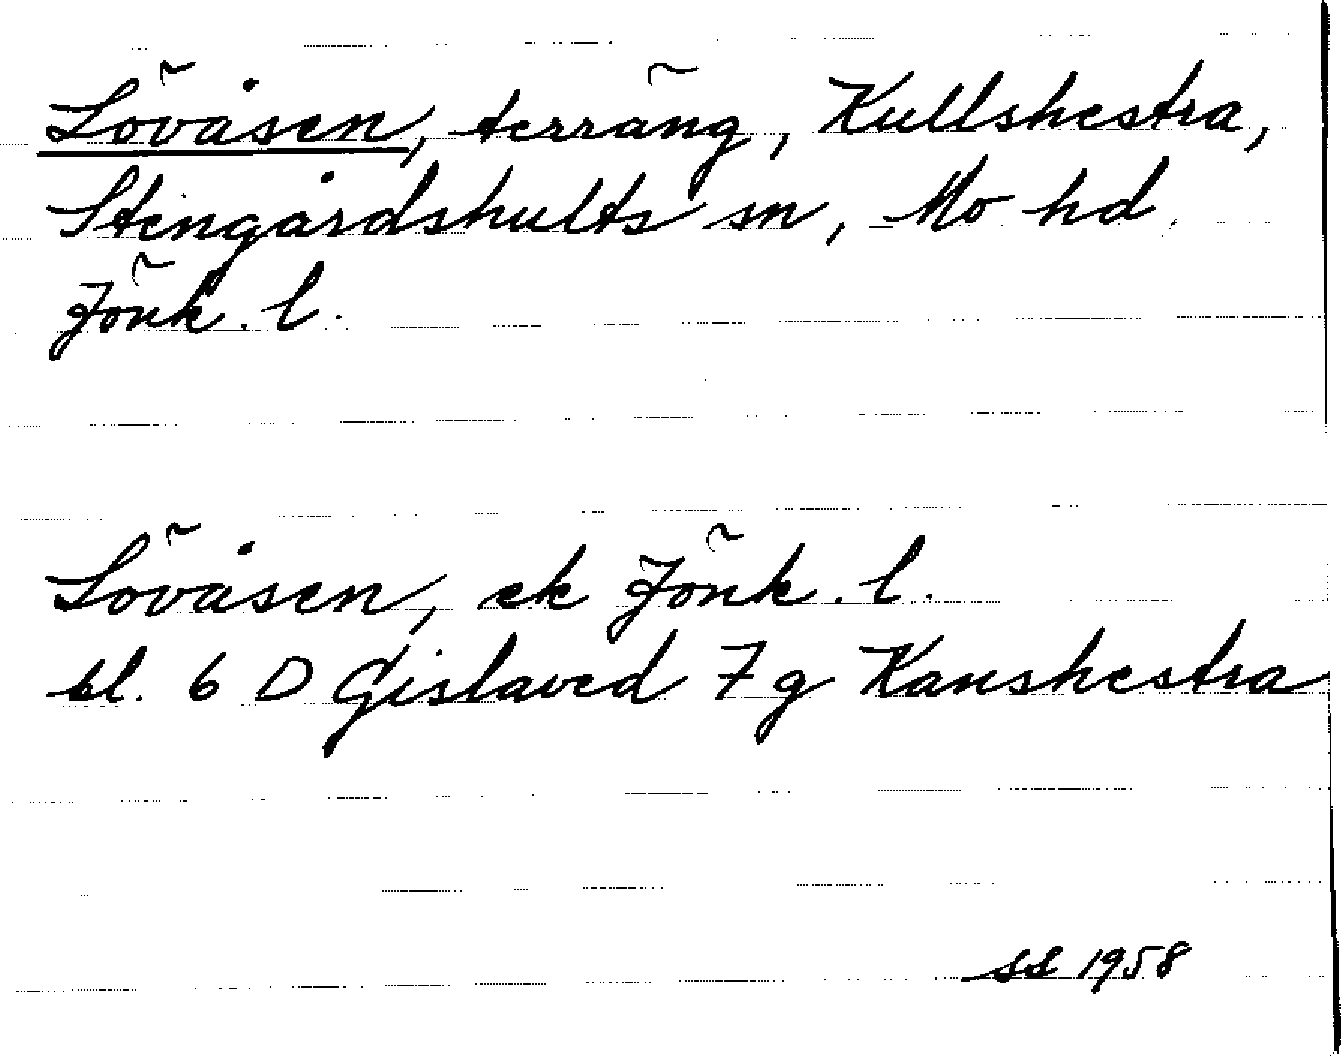 Lövåsen, terräng, Kullshestra,
Stengårdshults sn, Mo hd.
Jönk. l.
Lövåsen, ek Jönk. l.
bl. 6 D Gislaved 7 g Kanshestra
SS 1958